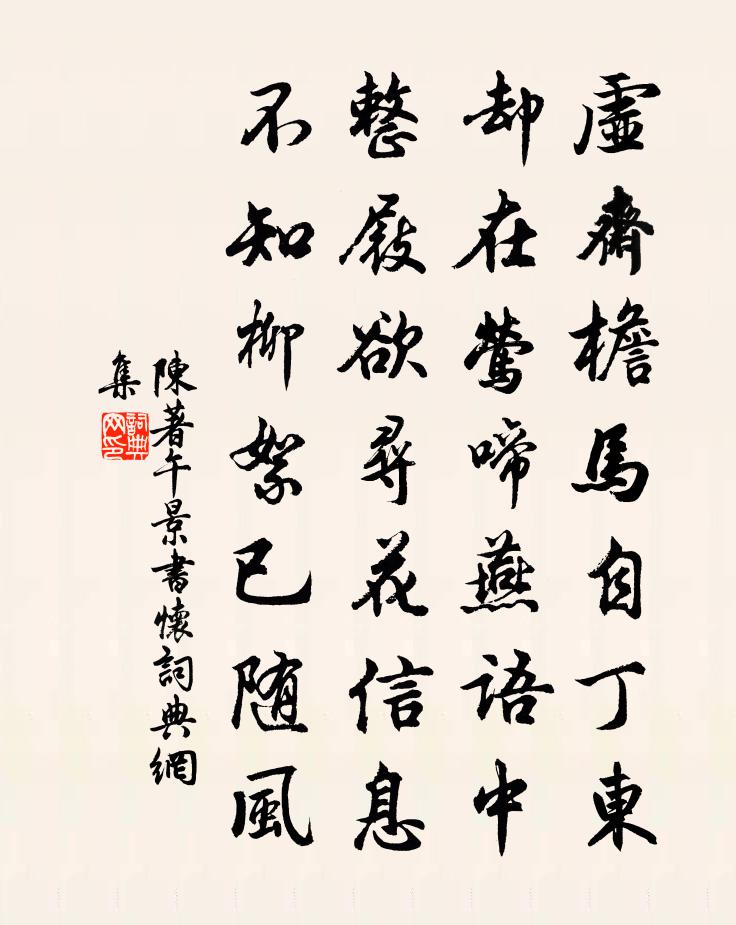 虛齋檐馬自丁東
却在鶯啼燕語中
整屐欲尋花信息
不知柳絮已随風
陳著午景書懷詞典網
集
詞典网印